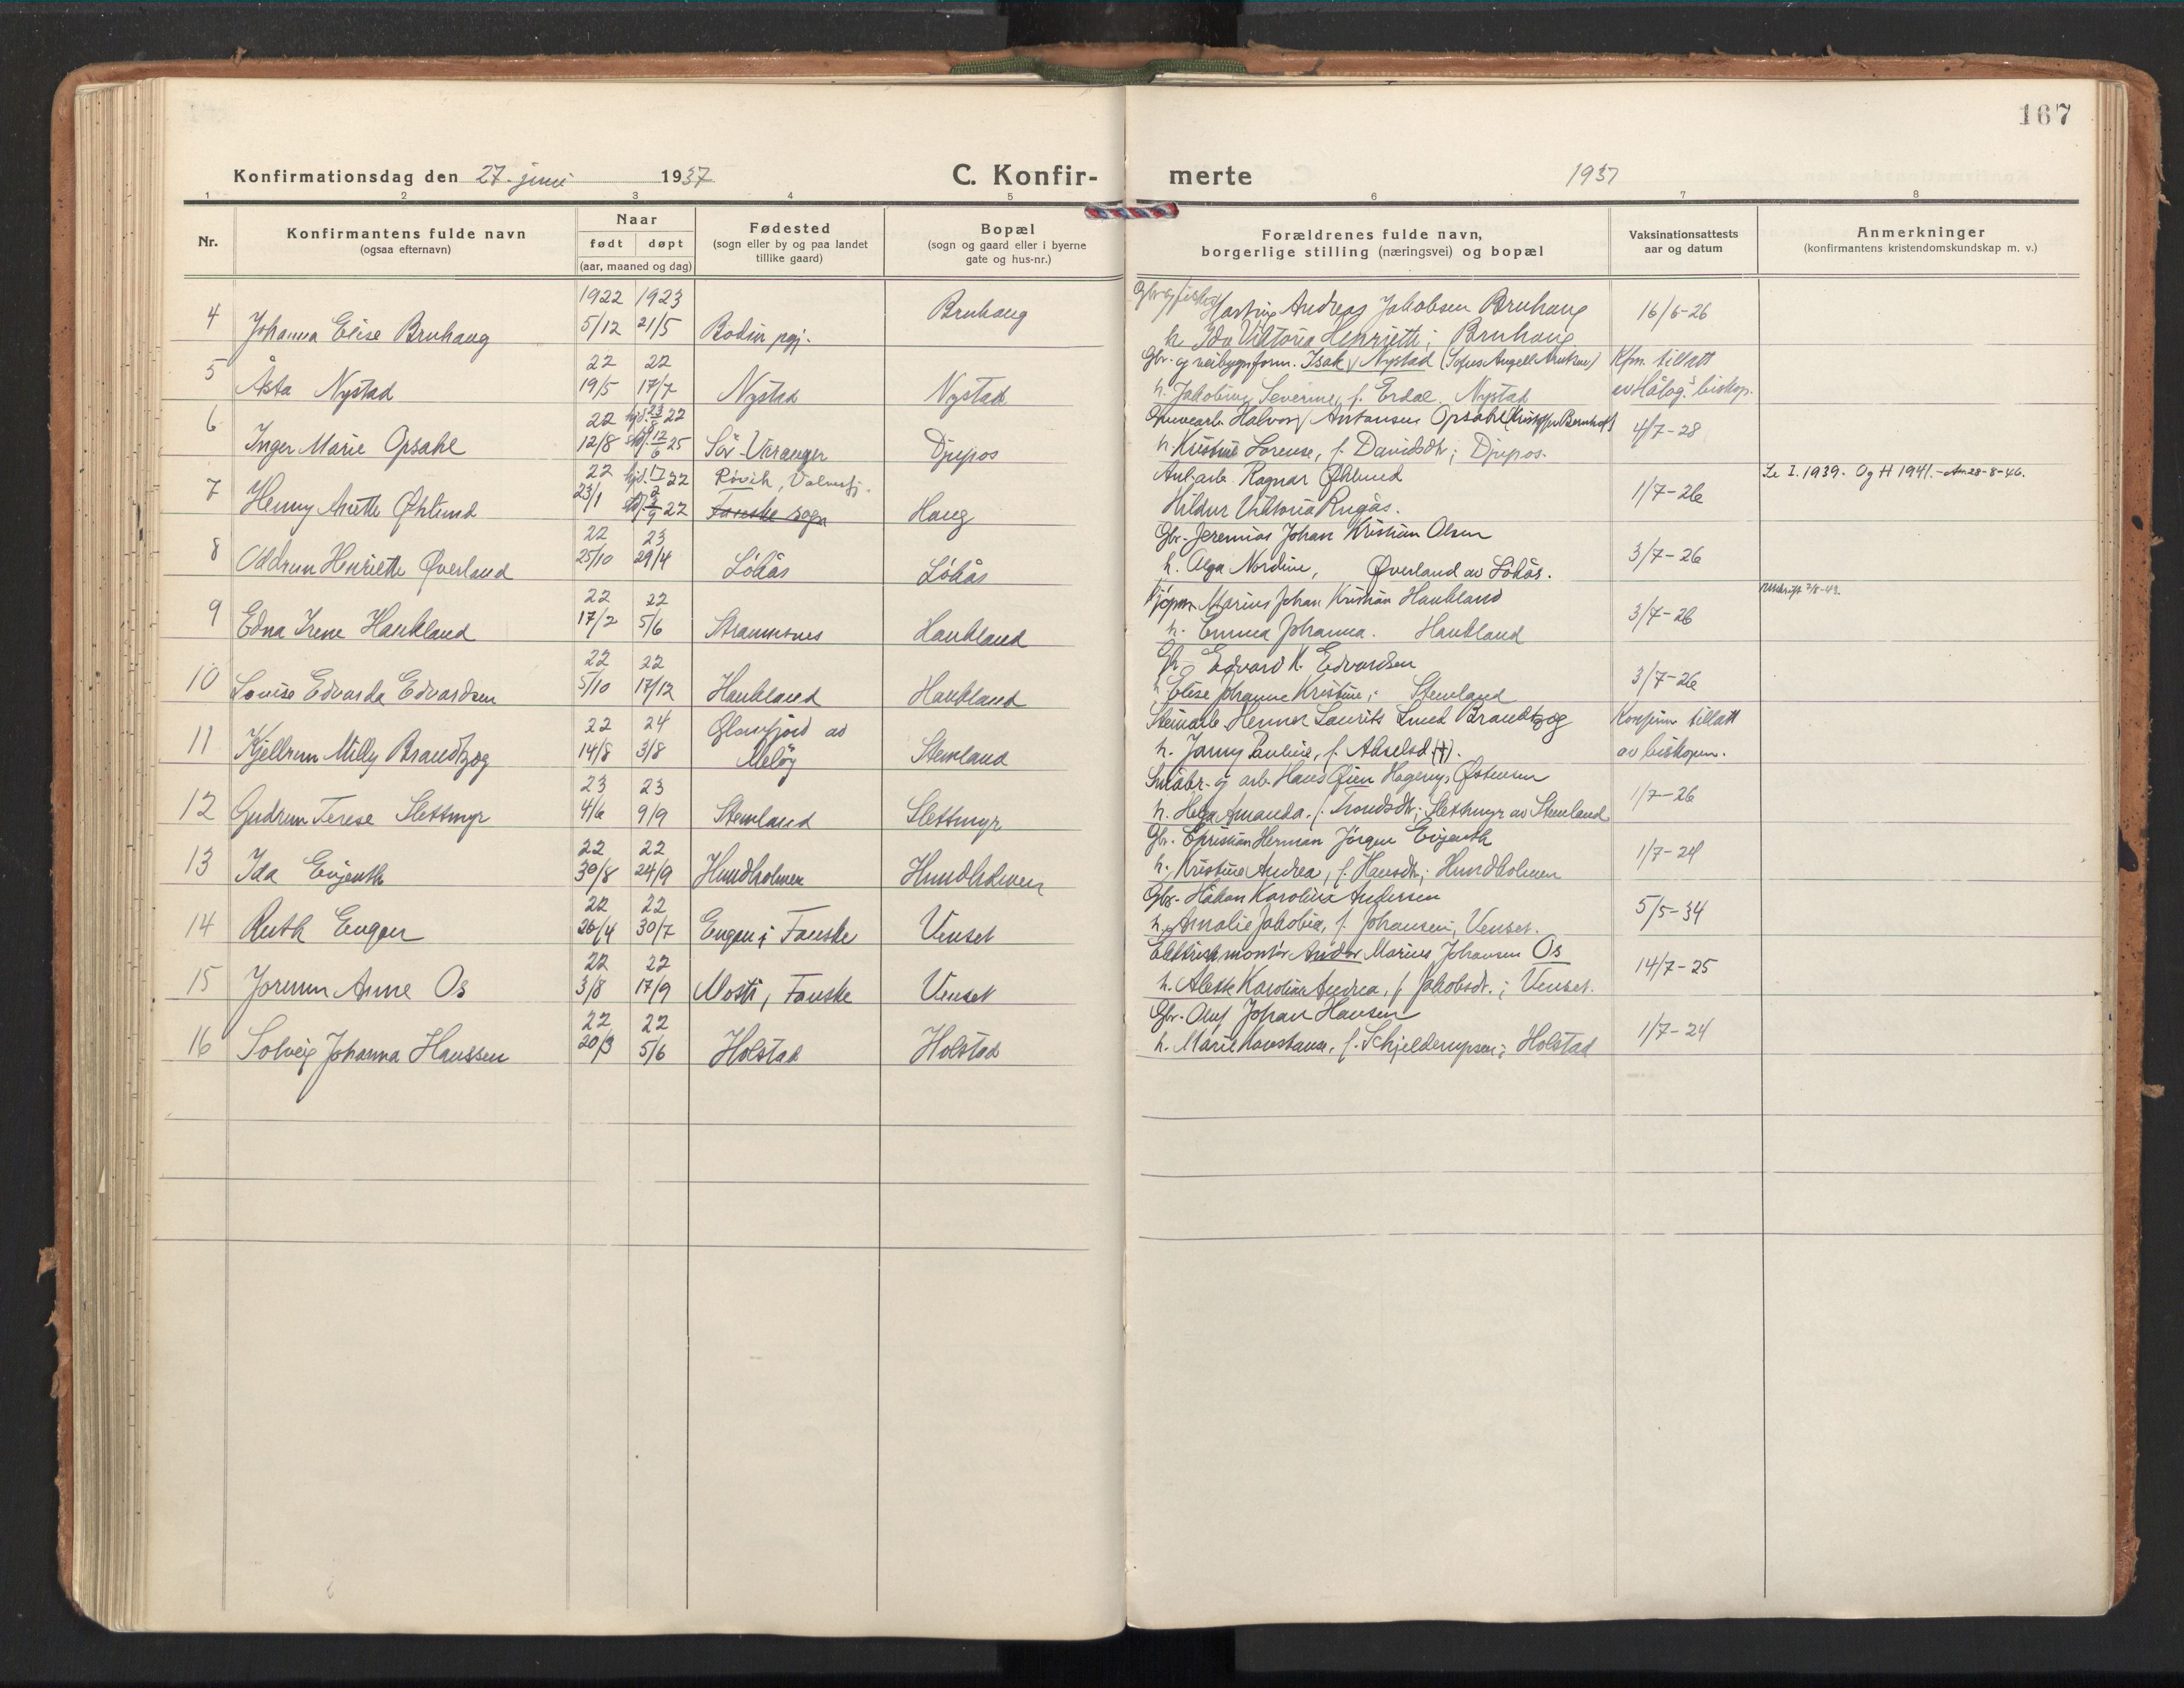 167
Konfirmationsdag den 27. juni 1937
C. Konfir-
merte
1937
1 2 3 4 5 6 7 8
Nr.
Konfirmantens fulde navn
(ogsaa efternavn)
Naar
født døpt
(aar, maaned og dag)
Fødested
(sogn eller by og paa landet
tillike gaard)
Bopæl
(sogn og gaard eller i byerne
gate og hus-nr.)
Forældrenes fulde navn,
borgerlige stilling (næringsvei) og bopæl
Vaksinationsattests
aar og datum
Anmerkninger
(konfirmantens kristendomskundskap m. v.)
1922 1923 Bruhaug Gbr. og fisker Hartvig Andreas Jakobsen Bruhaug 16/6-26
4 Johanna Elise Bruhaug 5/12 21/5 Bodin pgj. h. Ida Viktoria Henriette; Bruhaug.
22 22 Gbr. og veibygsform. Isak Nystad Kfm. tillatt
5 Åsta Nystad 19/5 17/7 Nystad Nystad h. Jakobine Severine, f. Erdal. Nystad av Hålog. biskop.
22 hjd. 23/8 22 Halvor Antonsen Opsahl 4/7-28
6 Inger Marie Opsahl 12/8 12/6 25 Sör-Varanger Djupos h. Kristine Lorense, f. Davidsdtr; Djupos.
22 hjd. 17/2 22 Røvik, Valnesfj. Anl.arb. Ragnar Øhlund Le I. 1939. Og H 1941. - An 28-8-46.
7 Henny Anette Øhlund 23/1 3/9 22 Fauske sogn Haug Hildur Viktoria Rugås. 1/7-26
22 23 Gbr. Jeremias Johan Kristian Olsen
8 Oddrun Henriette Øverland 25/10 29/4 Lökås Lökås h. Alga Nordine, Øverland av Lökås. 3/7-26
22 22 Kjöpm. Marius Johan Kristian Haukland Utskrift 2/8-43.
9 Edna Irene Haukland 17/2 5/6 Straumsnes Haukland h. Emma Johanna. Haukland 3/7-26
22 22 Gbr. Edvard K. Edvardsen
10 Lovise Edvarda Edvardsen 5/10 17/12 Haukland Haukland h. Elise Johanne Kristine; Stemland 3/7-26
22 24 Glomfjord av Steinarb. Henner Laurits Brandtzæg Konfirm. tillatt
11 Kjellrun Milly Brandtzæg 14/8 3/8 Meløy Stemland h. Jenny Pauline, f. Akselsd. (+). av biskopen.
23 23 Småbr. og arb. Hans Øien Hagerup Østensen
12 Gudrun Terese Slettmyr 4/6 9/9 Stemland Slettmyr h. Helga Amanda, f. Trondsdtr; Slettmyr av Stemland 1/7-26
22 22 Gbr. Christian Herman Jörgen Evjenth
13 Ida Evjenth 30/8 24/9 Hundholmen Hundholmen h. Kristine Andrea, f. Hansdtr; Hundholmen 1/7-24
22 22 Gbr. Håkon Karolius Andersen
14 Ruth Engan 26/4 30/7 Engan i Fauske Venset h. Amalie Jakobia, f. Johansen; Venset. 5/5-34
22 22 Elektrisk montør Andor Marius Johansen Os
15 Jorunn Anne Os 3/8 17/9 Mosti, Fauske Venset h. Karoline Andrea, f. Jakobsdt.; Venset. 14/7-25
22 22 Gbr. Oluf Johan Hansen
16 Solveig Johanna Hanssen 20/3 5/6 Holstad Holstad h. Marie Konstanse, f. Schjelderupsen; Holstad 1/7-24